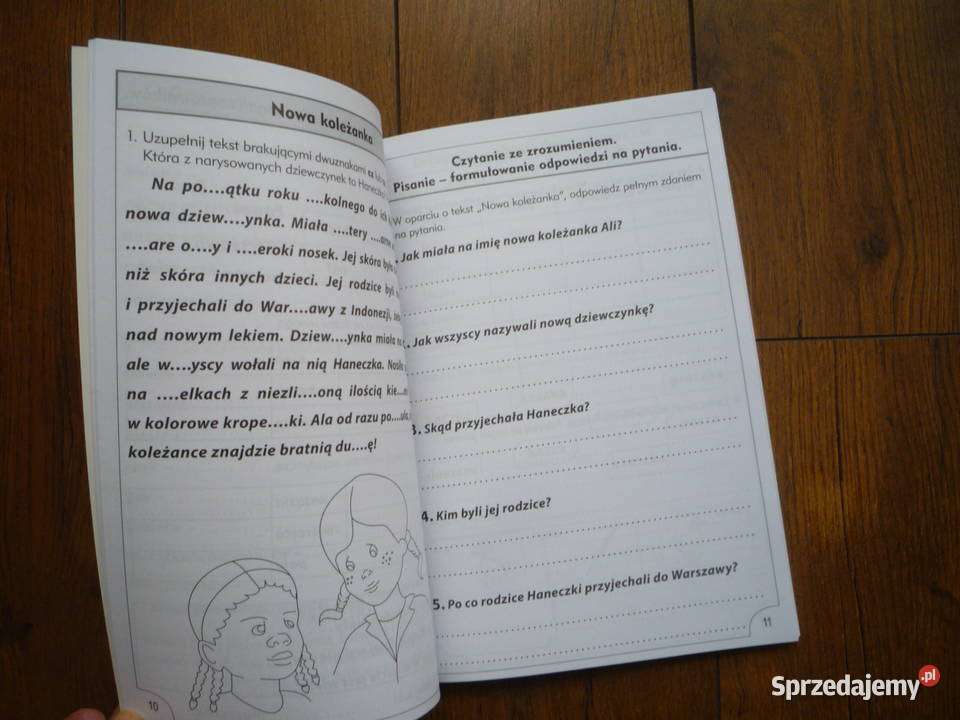 Nowa koleżanka
1. Uzupełnij tekst brakującymi dwuznakami cz lub
Która z narysowanych dziewczynek to Haneczka
Na po....ątku roku ....kolnego do ich
nowa dziew....ynka. Miała ....tery
....are o....y i ....eroki nosek. Jej skóra była
niż skóra innych dzieci. Jej rodzice byli
i przyjechali do War....awy z Indonezji,
nad nowym lekiem. Dziew....ynka miała
ale w....yscy wołali na nią Haneczka. Nosiła
na ....elkach z niezli....oną ilością kie....
w kolorowe krope....ki. Ala od razu po....uła,
koleżance znajdzie bratnią du....ę!
10
Czytanie ze zrozumieniem.
Pisanie – formułowanie odpowiedzi na pytania.
W oparciu o tekst „Nowa koleżanka”, odpowiedz pełnym zdaniem
na pytania.
. Jak miała na imię nowa koleżanka Ali?
. Jak wszyscy nazywali nową dziewczynkę?
3. Skąd przyjechała Haneczka?
4. Kim byli jej rodzice?
5. Po co rodzice Haneczki przyjechali do Warszawy?
11
Sprzedajemy.pl